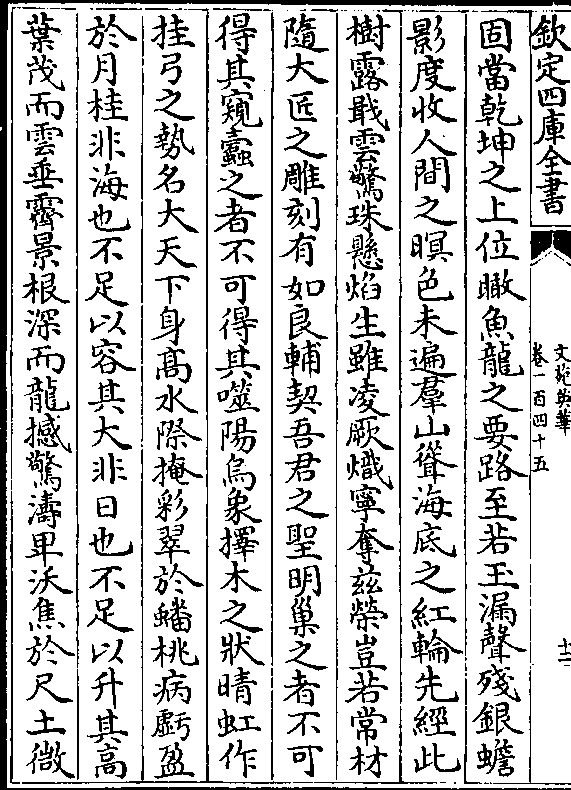 欽定四庫全書
文苑英華
卷一百四十五
十二
固當乾坤之上位瞰魚龍之要路至若玉漏聲殘銀蟾
影度收人間之暝色未遍羣山聳海底之紅輪先經此
樹露戢雲驚珠懸焰生雖凌厥熾寧奪茲榮豈若常材
隨大匠之雕刻有如良輔契吾君之聖明巢之者不可
得其窺蠹之者不可得其噬陽烏象擇木之狀晴虹作
挂弓之勢名大天下身髙水際掩彩翠於蟠桃病虧盈
於月桂非海也不足以容其大非日也不足以升其高
葉茂而雲垂霽景根深而龍撼驚濤卑沃焦於尺土微